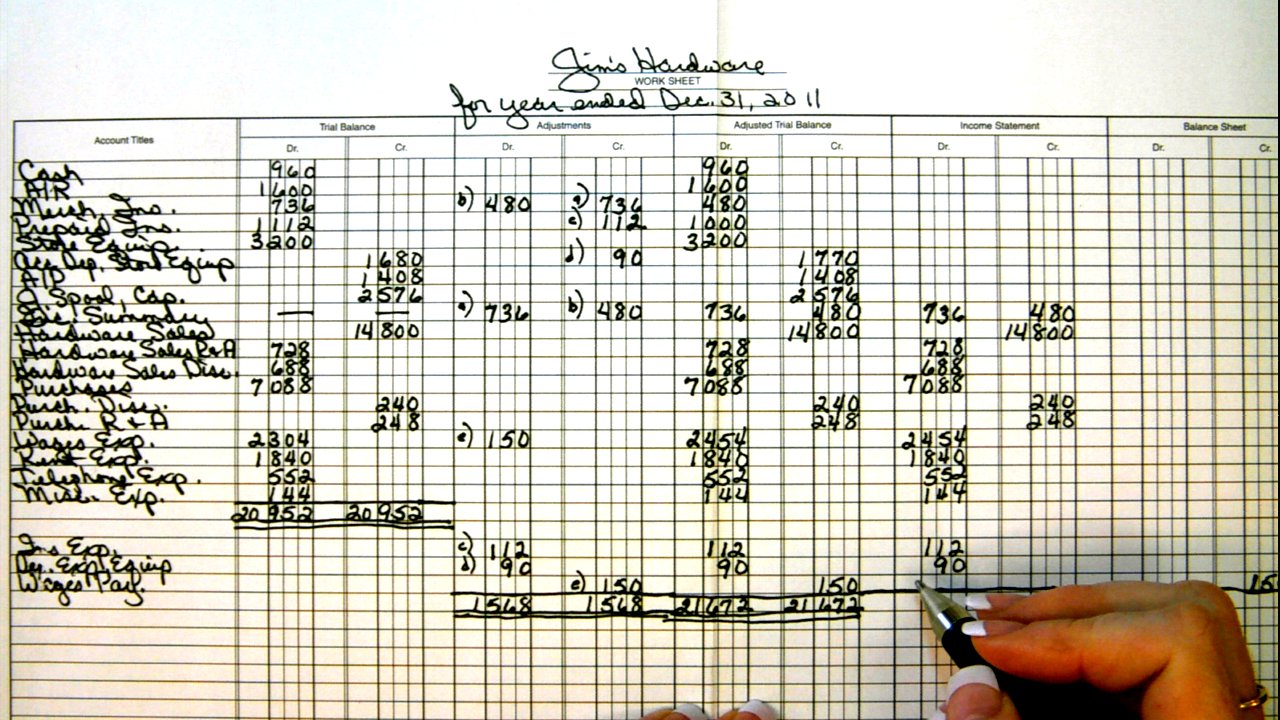 Jim's Hardware
WORK SHEET
for year ended Dec. 31, 2011
Account Titles Trial Balance Adjustments Adjusted Trial Balance Income Statement Balance Sheet
Dr. Cr. Dr. Cr. Dr. Cr. Dr. Cr. Dr. Cr.
Cash 960 960
A/R 1600 1600
Merch. Ins. 736 b) 480 a) 736 480
Prepaid Ins. 1112 c) 112 1000
Store Equip. 3200 3200
Acc. Dep. Store Equip 1680 d) 90 1770
A/P 1408 1408
J. Spool, Cap. 2576 2576
Inc. Summary — — a) 736 b) 480 736 480 736 480
Hardware Sales 14800 14800 14800
Hardware Sales R+A 728 728 728
Hardware Sales Disc. 688 688 688
Purchases 7088 7088 7088
Purch. Disc. 240 240 240
Purch. R + A 248 248 248
Wages Exp. 2304 e) 150 2454 2454
Rent Exp. 1840 1840 1840
Telephone Exp. 552 552 552
Misc. Exp. 144 144 144
20952 20952
Ins Exp. c) 112 112 112
Dep. Exp. Equip d) 90 90 90
Wages Pay. e) 150 150 15
1568 1568 21672 21672